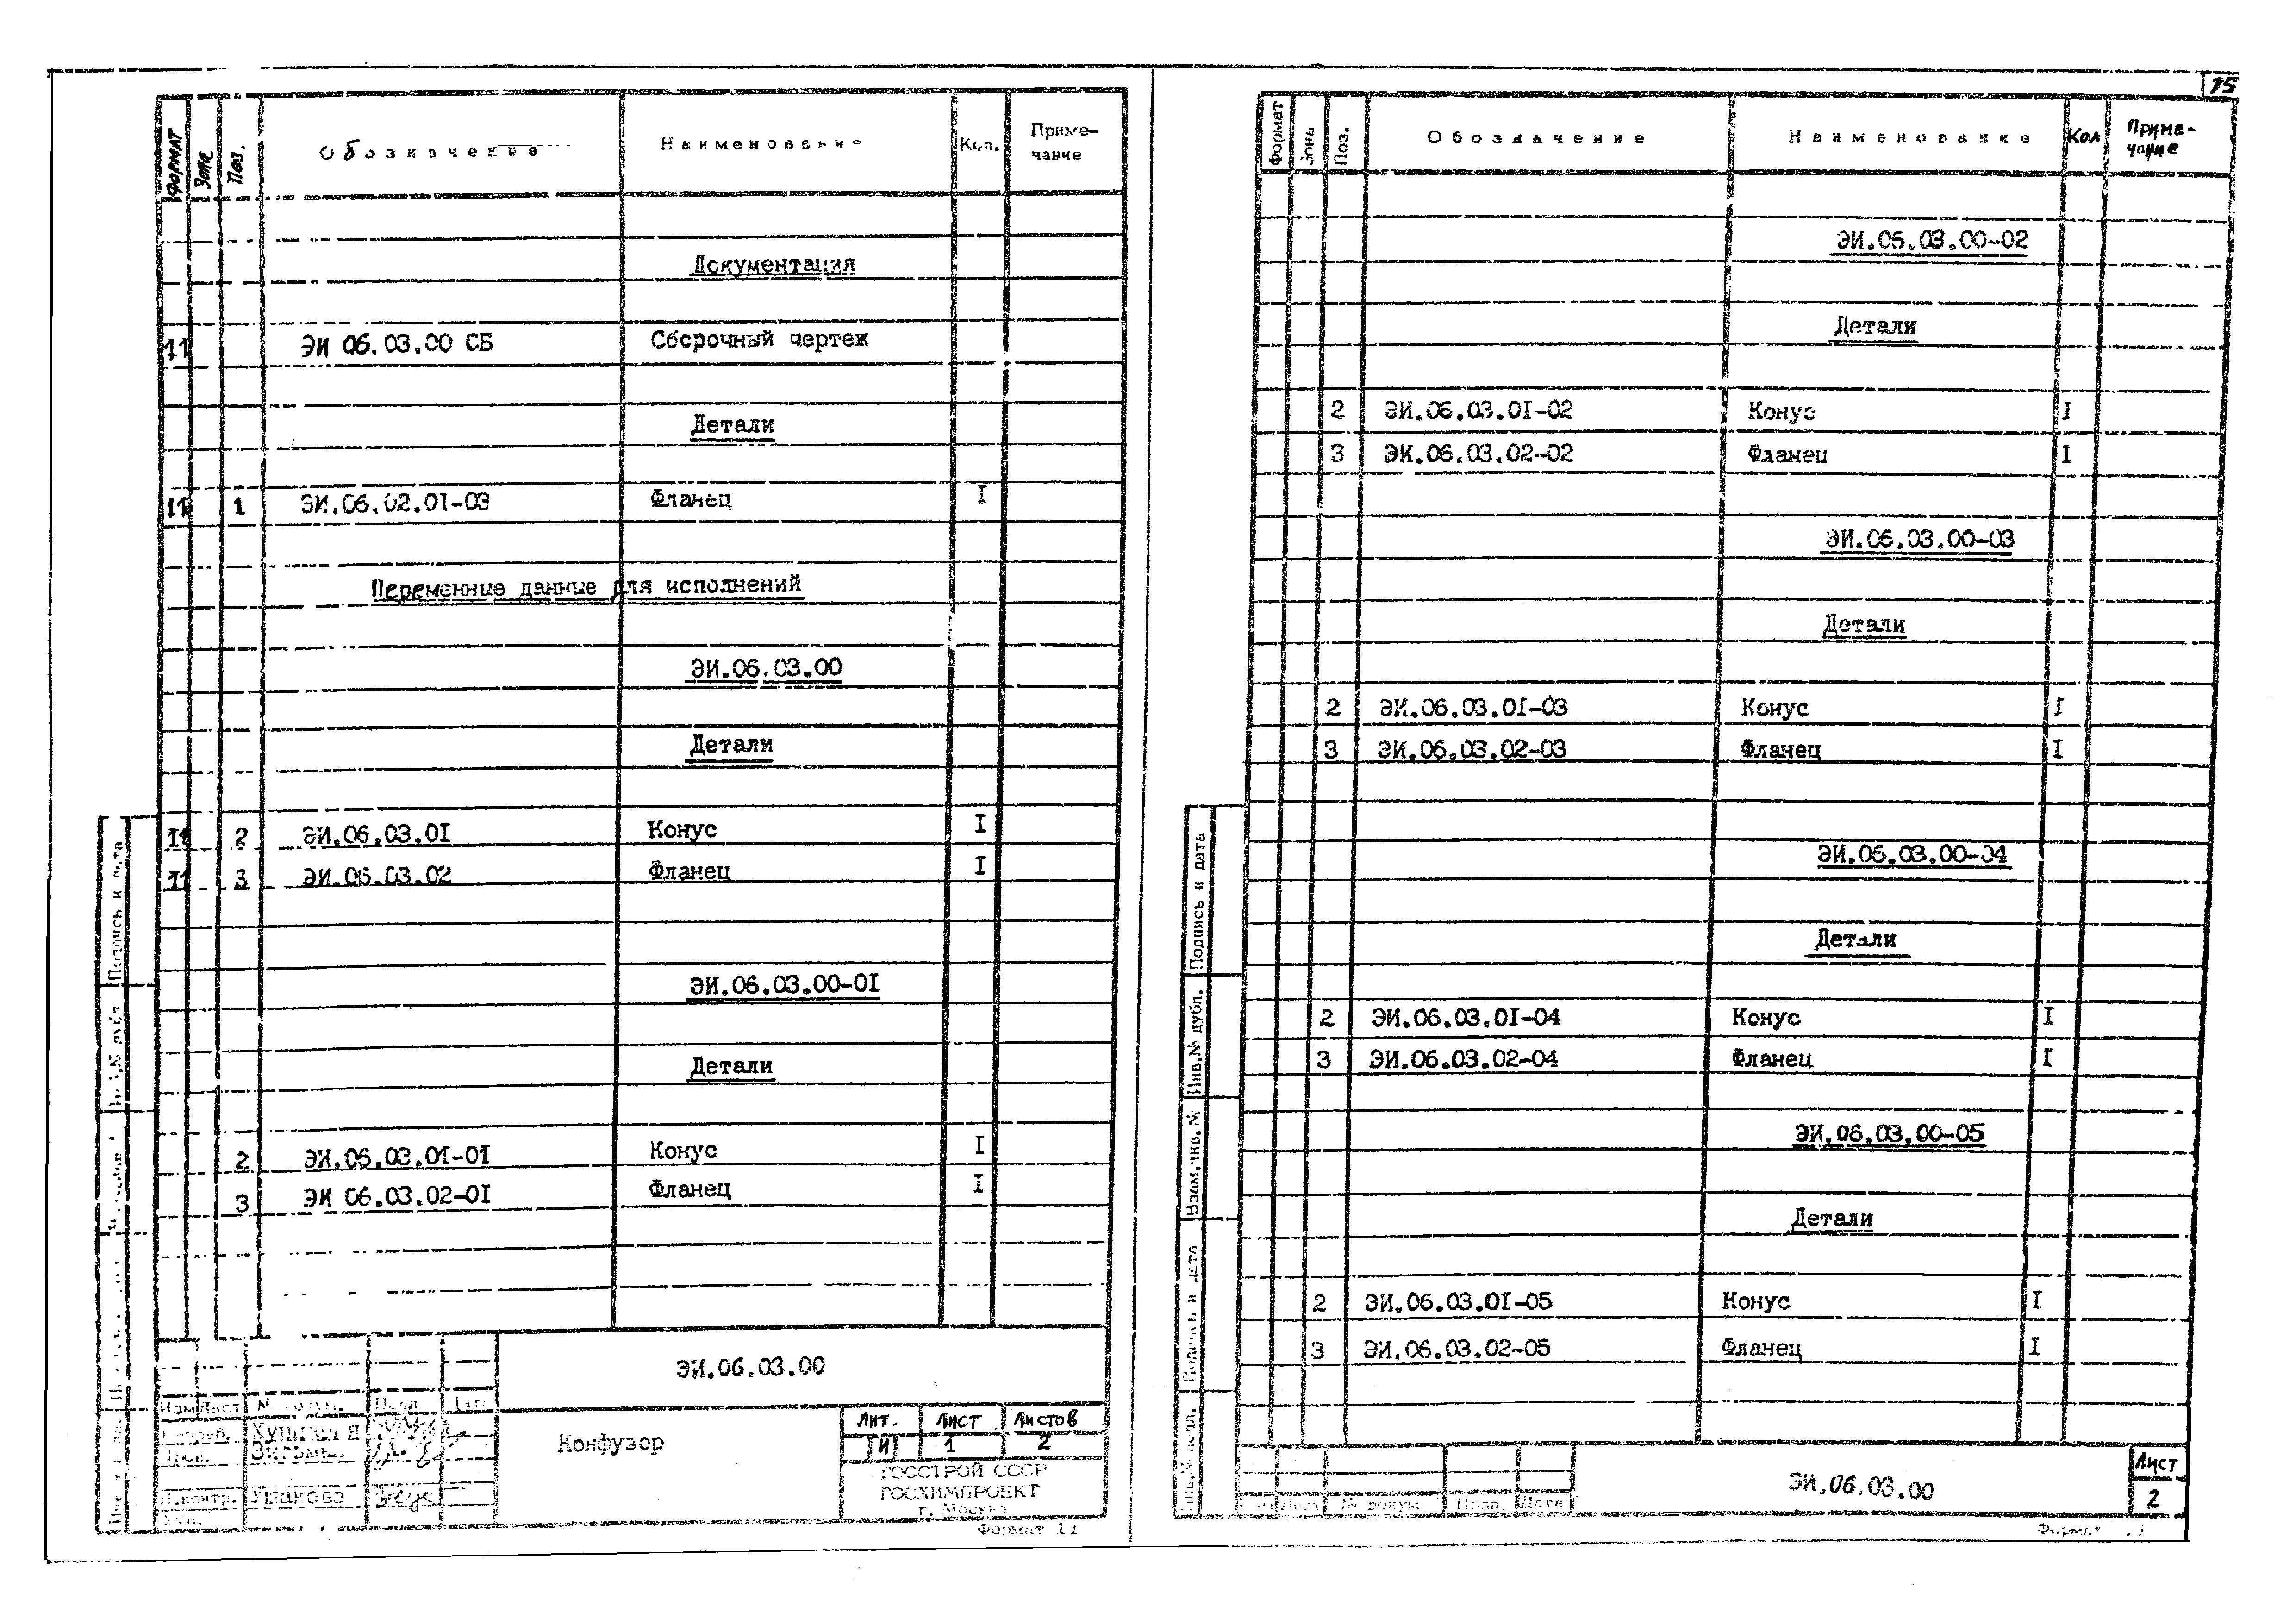 15
Формат Зона Поз. Обозначение Наименование Кол. Приме-
чание
Документация
11 ЭИ 06.03.00 СБ Сборочный чертеж
Детали
11 1 ЭИ.06.02.01-03 Фланец I
Переменные данные для исполнений
ЭИ.06.03.00
Детали
11 2 ЭИ.06.03.0I Конус I
11 3 ЭИ.06.03.02 Фланец I
ЭИ.06.03.00-0I
Детали
2 ЭИ.06.03.01-0I Конус I
3 ЭИ 06.03.02-0I Фланец I
ЭИ.06.03.00
Изм Лист
Н.контр. Ушакова
Конфузор
Лит. Лист Листов
И 1 2
ГОССТРОЙ СССР
ГОСХИМПРОЕКТ
г. Москва
Формат 11
Подпись и дата
Формат Зона Поз. Обозначение Наименование Кол Приме-
чание
ЭИ.06.03.00-02
Детали
2 ЭИ.06.03.0I-02 Конус I
3 ЭИ.06.03.02-02 Фланец I
ЭИ.06.03.00-03
Детали
2 ЭИ.06.03.0I-03 Конус I
3 ЭИ.06.03.02-03 Фланец I
ЭИ.06.03.00-04
Детали
2 ЭИ.06.03.0I-04 Конус I
3 ЭИ.06.03.02-04 Фланец I
ЭИ.06.03.00-05
Детали
2 ЭИ.06.03.0I-05 Конус I
3 ЭИ.06.03.02-05 Фланец I
Подпись и дата
Инв.№ дубл.
Взам.инв.№
Подпись и дата
Инв.№ подл.
№ докум. Подп. Дата
ЭИ.06.03.00
Лист
2
Формат